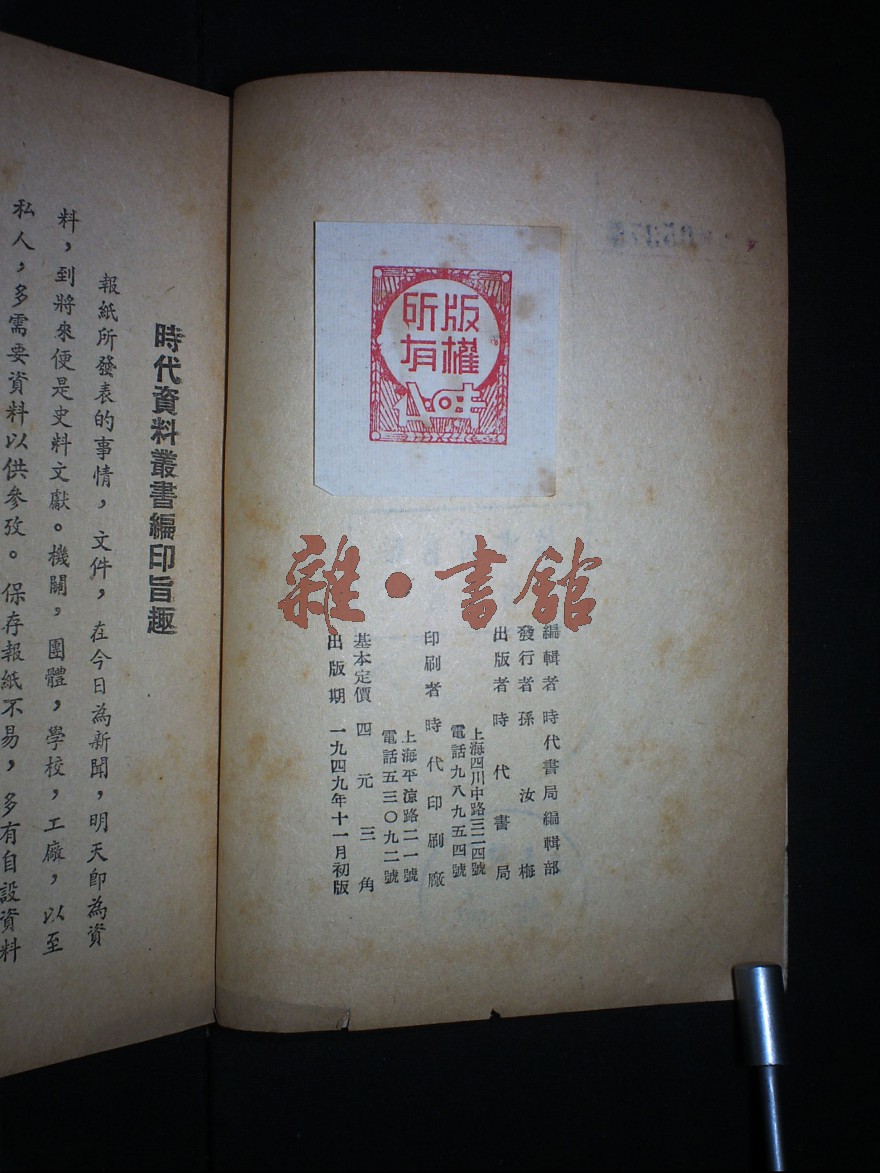 版權
所有
雜·書舘
編輯者 時代書局編輯部
發行者 孫汝梅
出版者 時代書局
上海四川中路三二四號
電話九八九五四號
印刷者 時代印刷廠
上海平涼路二一號
電話五三〇九二號
基本定價 四元三角
出版期 一九四九年十一月初版
時代資料叢書編印旨趣
報紙所發表的事情,文件,在今日為新聞,明天卽為資
料,到將來便是史料文獻。機關,團體,學校,工廠,以至
私人,多需要資料以供參攷。保存報紙不易,多有自設資料